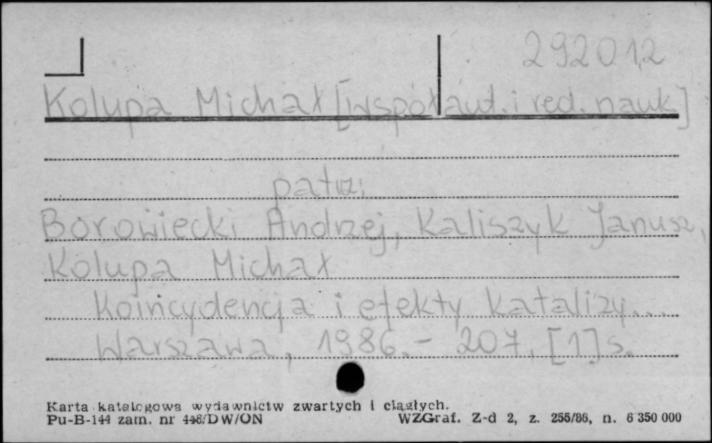 292012
Kolupa Michał [współaut. i red. nauk]
patrz:
Borowiecki Andrzej, Kaliszyk Janusz,
Kolupa Michał
Koincydencja i efekty katalizy...
Warszawa, 1986.- 207, [1] s.
Karta katalogowa wydawnictw zwartych i ciągłych.
Pu-B-144 zam. nr 448/DW/ON WZGraf. Z-d 2, z. 255/86, n. 6 350 000